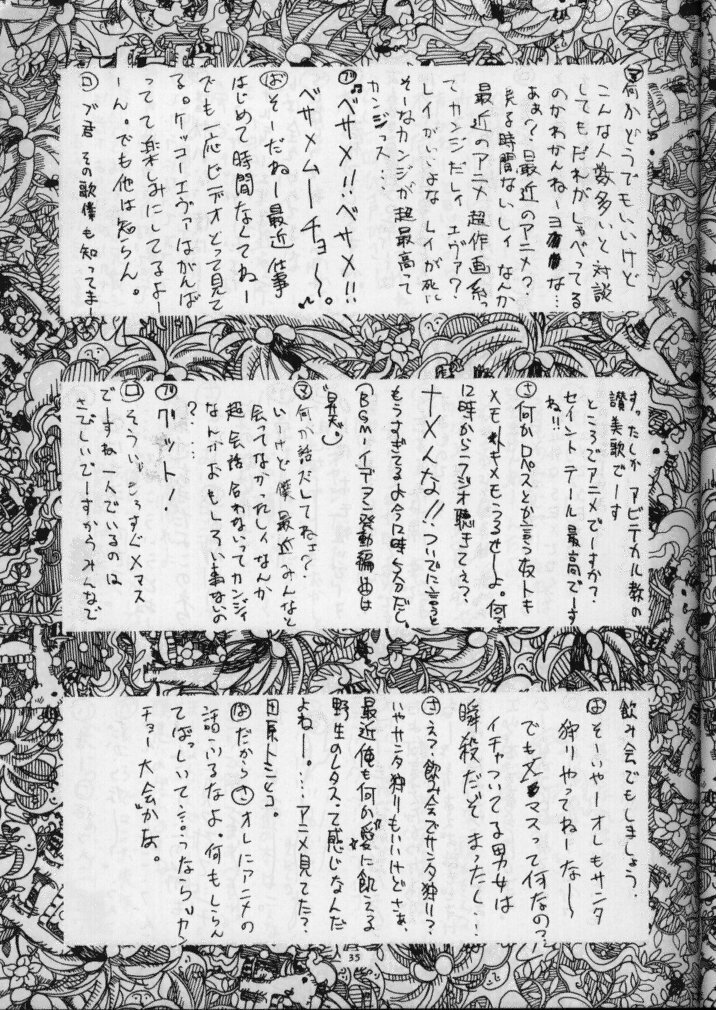 マ 何かどうでもいいけど
こんな人数多いと対談
してもだれがしゃべってる
のかわかんねーヨな…
あぁ?最近のアニメ?
見る時間ないしィなんか
最近のアニメ超作画系っ
てカンジだしィエヴァ?
レイがいいよなレイが死に
そーなカンジが超最高って
カンジっス…
ブ ♬ベサメ!!ベサメ!!
ベサメムーチョ〜。♪
ば そーだねー最近仕事
はじめて時間なくてねー
でも一応ビデオとって見て
る。ケッコーエヴァはがんば
ってて楽しみにしてるよー
ーん。でも他は知らん。
ロ ブ君 その歌僕も知ってまー
すったしか アビテカル教の
讃美歌でーす
ところでアニメでーすか?
セイントテール最高でーす
ね!!
さ 何かロペスとか言う奴トキ
メモトキメモうるせーよ。何?
12時からラジオ聴きてぇ?
ナメんな!!ついでに言うと
もうすぎてるよ今12時
分だし。
(BGM・イデアン発動編曲は
昇天)
マ 何か話ズレてねェ?
いーけど僕最近みんなと
会ってなかったしィなんか
超会話合わないってカンジィ
なんかおもしろい事ないの
?…
ブ グット!
ロ そういえもうすぐXマス
でーすね一人でいるのは
さびしいでーすからみんなで
飲み会でもしましょう.
ば そーいやーオレもサンタ
狩りやってねーな〜
でもXマスって何なの?
イチャついてる男女は
瞬殺だぞまったく…
さ え?飲み会でサンタ狩り?
いやサンタ狩りもいいけどさぁ、
最近俺も何か愛に飢える
野生のレタスって感じなんだ
よねー。…アニメ見てた?
田原トシヒコ。
ば だからさオレにアニメの
話ふるなよ。何もしらん
てばっしいて…
チョー大会かな。
35